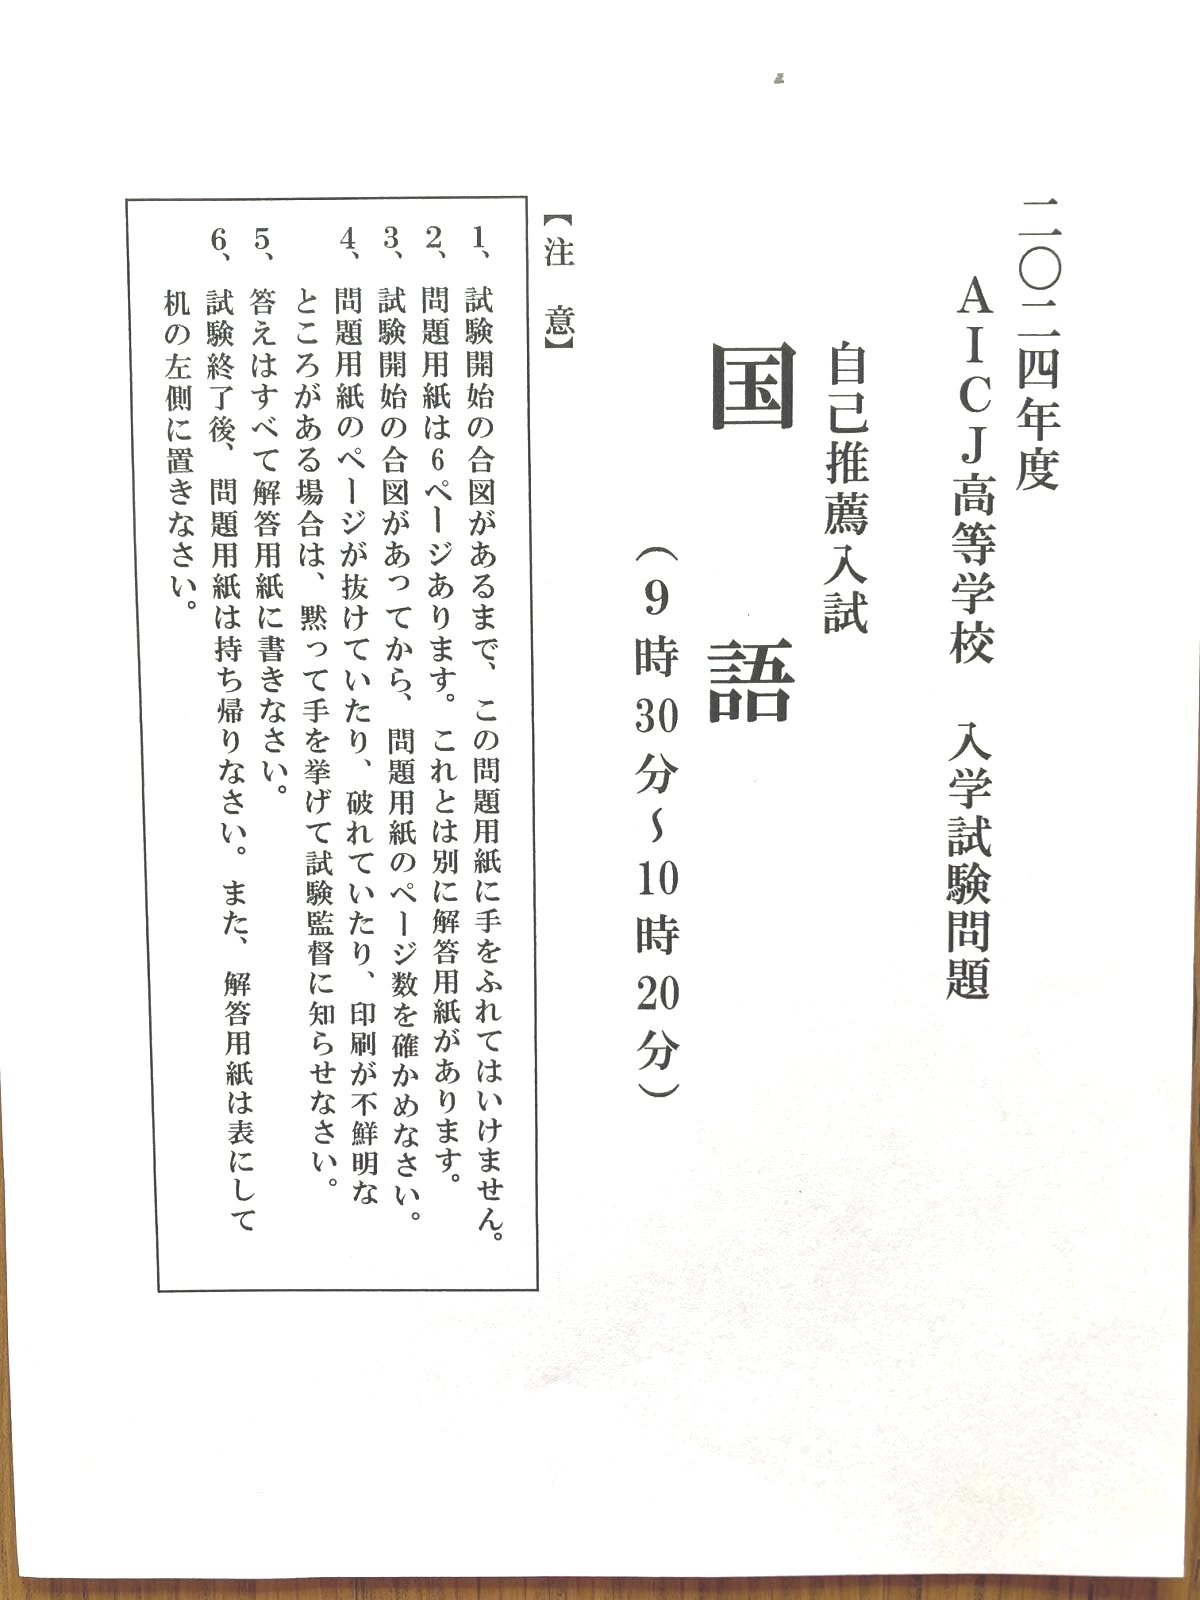 二〇二四年度
AICJ高等学校　入学試験問題
自己推薦入試
国　語
（9時30分～10時20分）
【注　意】
1、試験開始の合図があるまで、この問題用紙に手をふれてはいけません。
2、問題用紙は6ページあります。これとは別に解答用紙があります。
3、試験開始の合図があってから、問題用紙のページ数を確かめなさい。
4、問題用紙のページが抜けていたり、破れていたり、印刷が不鮮明な
ところがある場合は、黙って手を挙げて試験監督に知らせなさい。
5、答えはすべて解答用紙に書きなさい。
6、試験終了後、問題用紙は持ち帰りなさい。また、解答用紙は表にして
机の左側に置きなさい。